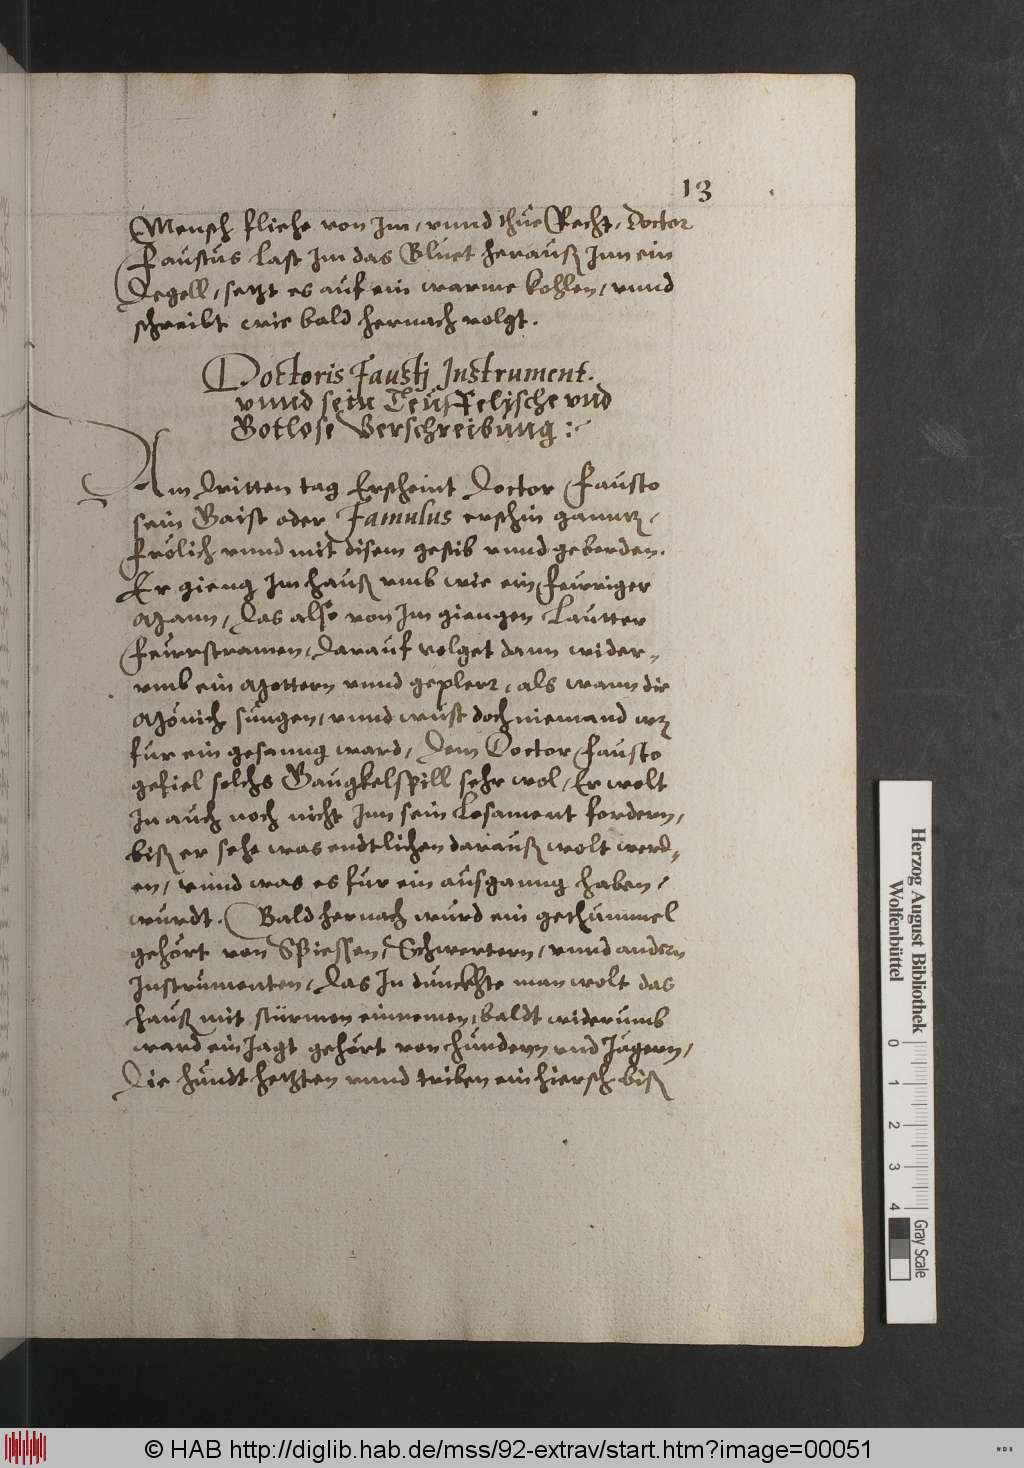 13
Mensch fliehe von Im, vnnd thüe Recht, Doctor
Faustus last Im das Bluet herauß Inn ein
Degell, setzt es auf ein warme kohlen, vnnd
schreibt wie bald hernach volgt.
Doctoris Faustj Instrument.
vnnd sein Teüffelische vnd
Gotlose Verschreibüng :
Am dritten tag Erscheint Doctor Fausto
sein Gaist oder Famulus erschin ganntz,
frölich vnnd mit disem gestib vnnd geberden.
Er gieng Im hauß vmb wie ein feuriger
Mann, das also von Im giengen Lautter
feürstramen, darauf volget dann wider-
vmb ein Mottern vnnd geplerr, als wann die
Mönich süngen, vnnd wüst doch niemand wz
für ein gesanng ward, dem Doctor Fausto
gefiel solchs Gaugkelspill sehr wol, Er wolt
In auch noch nicht Inn sein Losament fordern,
biß er sehe was endtlichen darauß wolt werd-
en, vnnd was es fur ein ausganng haben,
wurdt. Bald hernach wurd ein gethümmel
gehört von Spiessen, Schwertern, vnnd andern
Instrümenten, das In dünckhte man wolt das
hauß mit stürmen einnemen, baldt widerumb
ward ein Jagt gehört von hünden vnd Jägern,
die hündt hetzten vnnd triben ein hiersch biß
Herzog August Bibliothek
Wolfenbüttel
0 1 2 3 4
Gray Scale
© HAB http://diglib.hab.de/mss/92-extrav/start.htm?image=00051